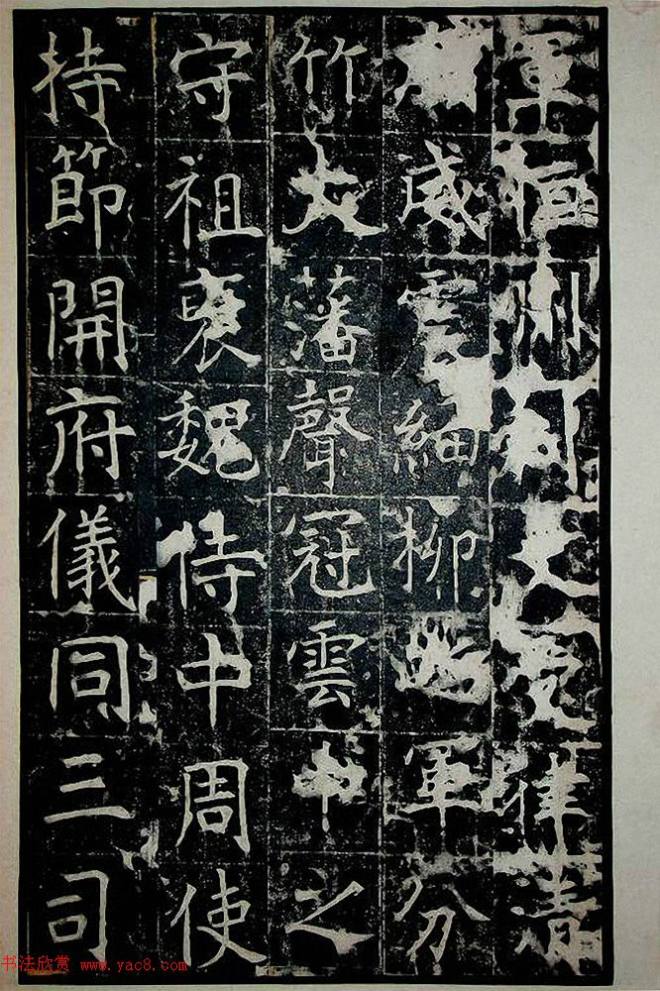 軍恒州刺史受律清
威震細柳軍分
竹大藩聲冠雲中之
守祖裒魏侍中周使
持節開府儀同三司
书法欣赏 www.yac8.com